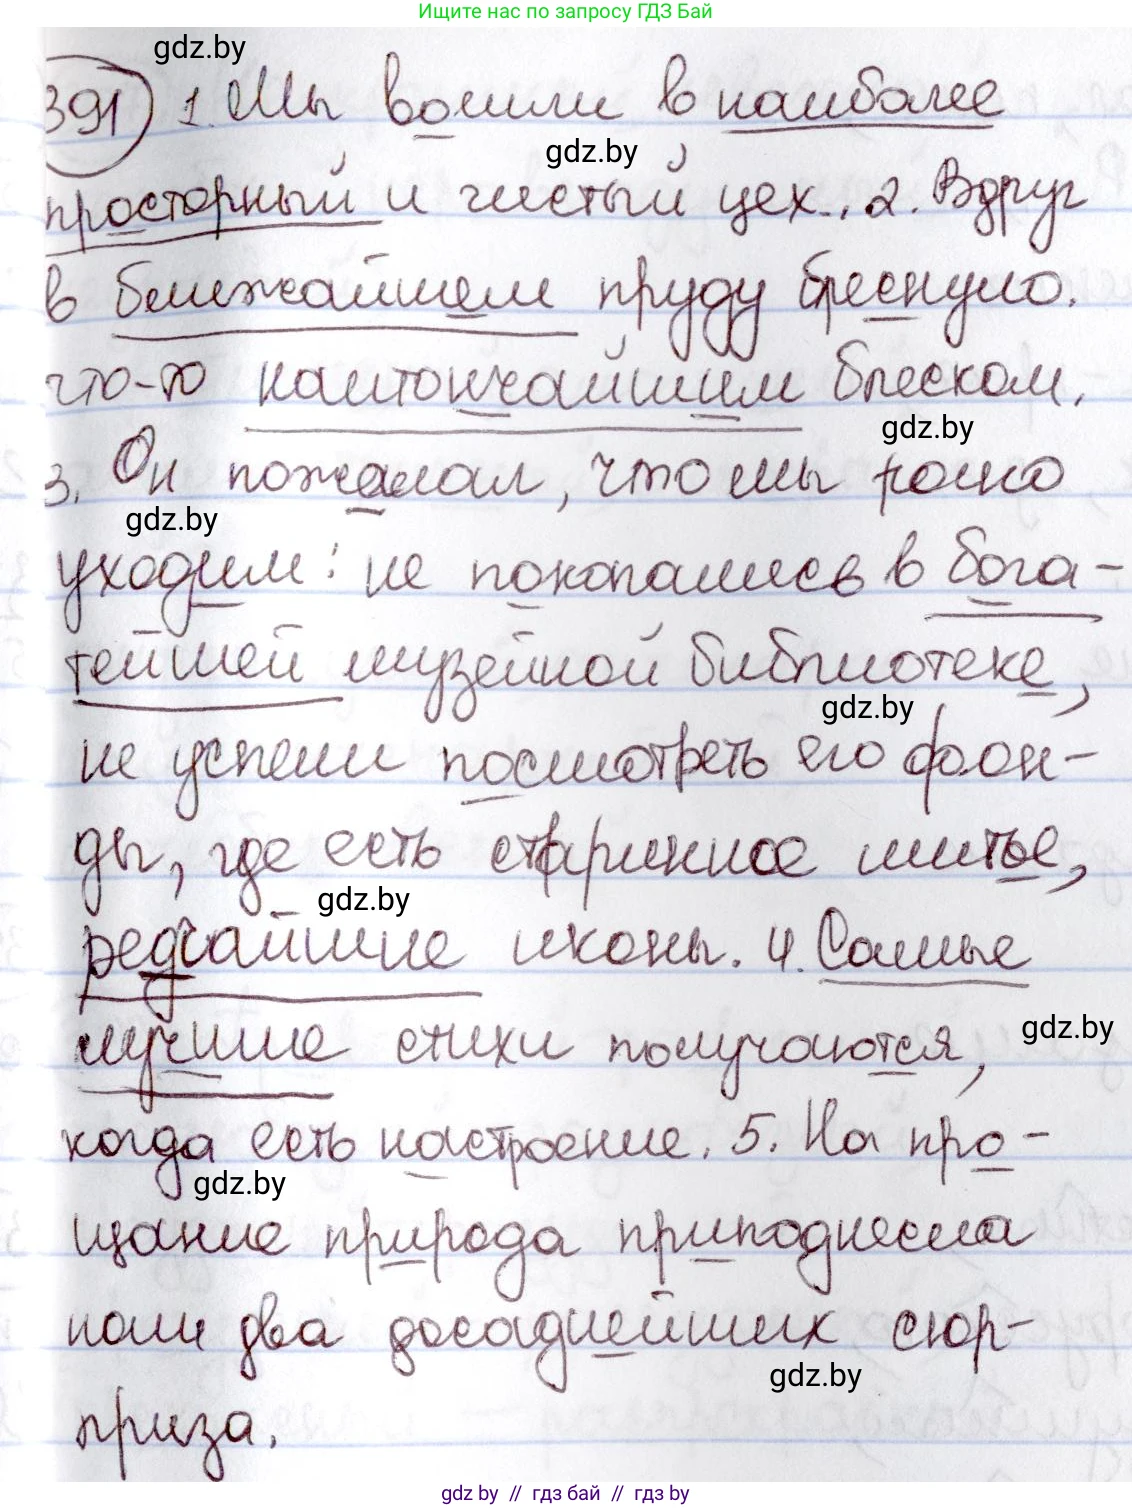 Ищите нас по запросу ГДЗ Бай
gdz.by
391) 1. Мы вошли в наиболее
gdz.by
просторный и чистый цех. 2. Вдруг
в ближайшем пруду блеснуло
что-то наитончайшим блеском.
gdz.by
3. Он пожалал, что мы рано
gdz.by
уходим: не покопались в бога-
тейшей музейной библиотеке,
gdz.by
не успели посмотреть его фон-
ды, где есть старинное литье,
gdz.by
редчайшие иконы. 4. Самые
лучшие стихи получаются,
gdz.by
когда есть настроение. 5. На про-
gdz.by
щание природа приподнесла
нам два досаднейших сюр-
gdz.by
приза.
gdz.by // гдз бай // гдз by